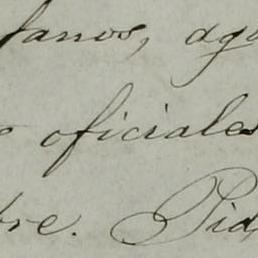 fanos, ago
oficiales
bre. Pid